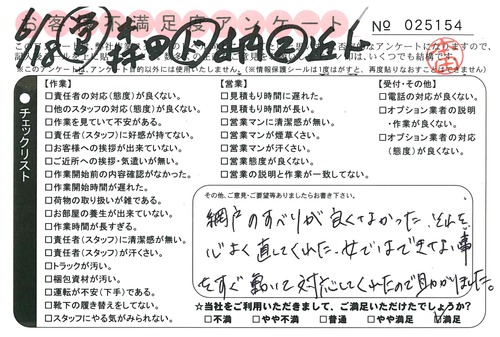 お客様不満足度アンケート
No 025154
チェックリスト
【作業】
□責任者の対応(態度)が良くない。
□他のスタッフの対応(態度)が良くない。
□作業を見ていて不安がある。
□責任者(スタッフ)に好感が持てない。
□お客様への挨拶が出来ていない。
□ご近所への挨拶・気遣いが無い。
□作業開始前の内容確認がなかった。
□作業開始時間が遅れた。
□荷物の取り扱いが雑である。
□お部屋の養生が出来ていない。
□作業時間が長すぎる。
□責任者(スタッフ)に清潔感が無い。
□責任者(スタッフ)が汗くさい。
□トラックが汚い。
□梱包資材が汚い。
□運転が不安(下手)である。
□靴下の履き替えをしてない。
□スタッフにやる気がみられない。
【営業】
□見積もり時間に遅れた。
□見積もり時間が長い。
□営業マンに清潔感が無い。
□営業マンが煙草くさい。
□営業マンが汗くさい。
□営業態度が良くない。
□営業の説明と作業が一致してない。
【受付・その他】
□電話の対応が良くない。
□オプション業者の説明
・作業が良くない。
□オプション業者の対応
(態度)が良くない。
その他、ご意見・ご要望等ありましたらお書き下さい。
網戸のすべりが良くなかった、それを
心よく直してくれた。女ではできない事
をすぐ動いて対応してくれたので助かりました。
☆当社をご利用いただきまして、ご満足いただけたでしょうか?
□不満 □やや不満 □普通 □やや満足 ☑満足